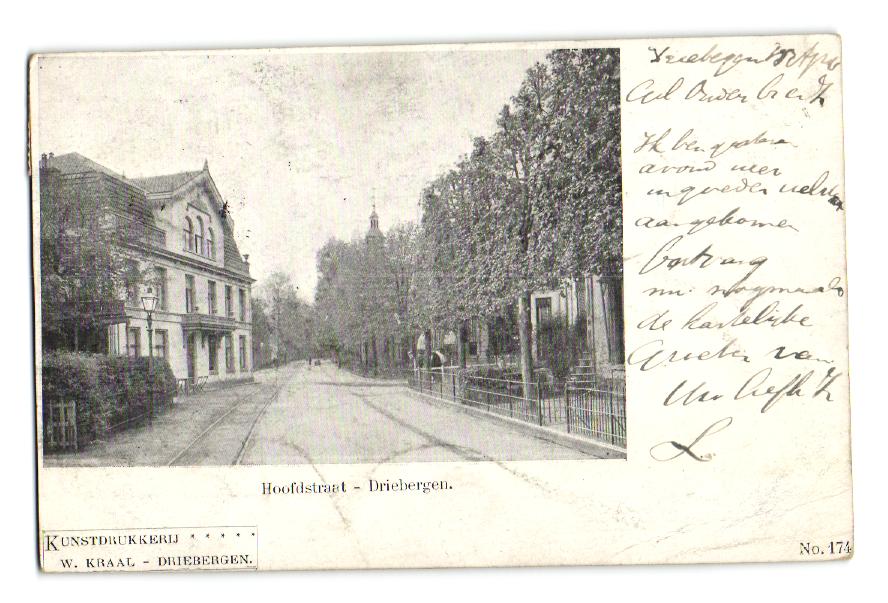 Driebergen 15 Apr
Ik ben gisteren
avond weer
in goeden welstand
aangekomen
Ontvang
nu nogmaals
de hartelijke
Groeten van
Uw liefh
L.
Hoofdstraat - Driebergen.
KUNSTDRUKKERIJ * * * * *
W. KRAAL - DRIEBERGEN.
No. 174